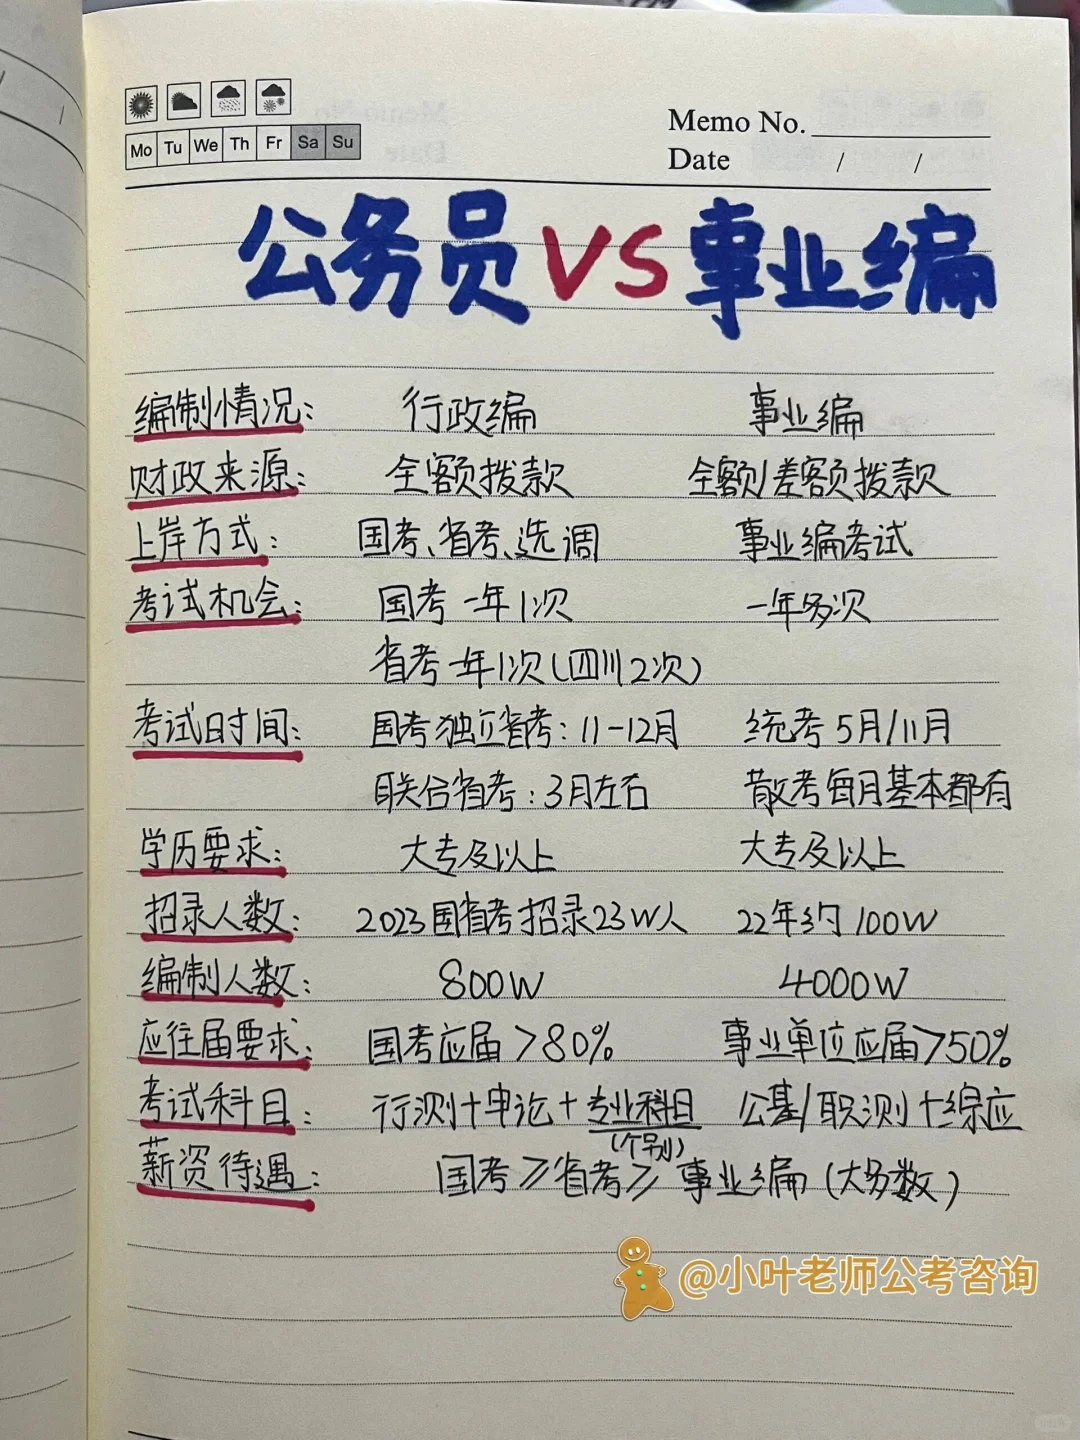 Mo Tu We Th Fr Sa Su
Memo No.
Date / /
公务员 VS 事业编
编制情况: 行政编 事业编
财政来源: 全额拨款 全额/差额拨款
上岸方式: 国考、省考、选调 事业编考试
考试机会: 国考一年1次 一年多次
省考一年1次(四川2次)
考试时间: 国考独立省考:11-12月 统考5月/11月
联合省考:3月左右 散考每月基本都有
学历要求: 大专及以上 大专及以上
招录人数: 2023国省考招录23W人 22年约100W
编制人数: 800W 4000W
应往届要求: 国考应届>80% 事业单位应届>50%
考试科目: 行测+申论+专业科目 公基/职测+综应
(个别)
薪资待遇: 国考≥省考≥事业编(大多数)
@小叶老师公考咨询